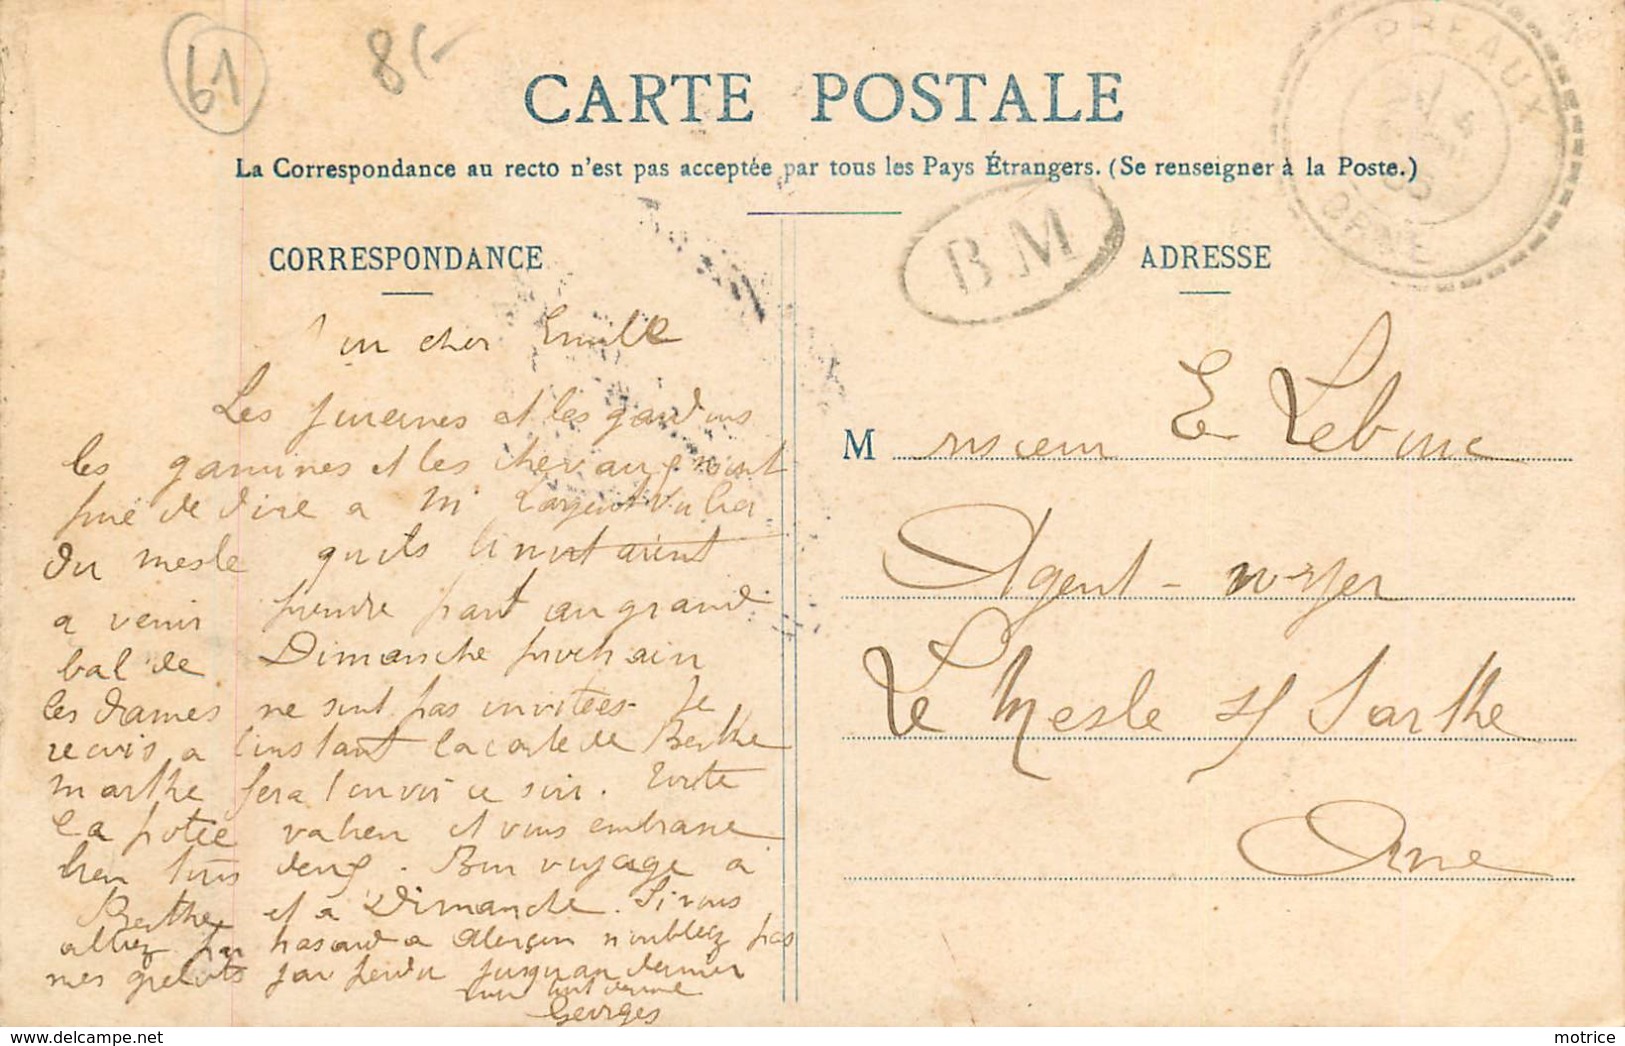 61
8(-
CARTE POSTALE
La Correspondance au recto n'est pas acceptée par tous les Pays Étrangers. (Se renseigner à la Poste.)
PREAUX
ORNE
B M
CORRESPONDANCE
ADRESSE
cher Emile
Les et les
les gamines et les chevaux
de dire a M
du mesle quils linvitaient
a venir prendre part au grand
bal de Dimanche prochain
les dames ne sont pas invitées Je
recois a linstant la carte de Berthe
Marthe fera l'envoi ce soir. toute
la potée va bien et vous embrasse
bien tous deux. Bon voyage a
Berthe et a Dimanche. Si vous
alliez par hasard a Alençon n'oubliez pas
mes grelots jai perdu jusquau dernier
Georges
M onsieur E Lebouc
Agent-voyer
Le Mesle s/ Sarthe
Orne
https://www.delcampe.net
motrice